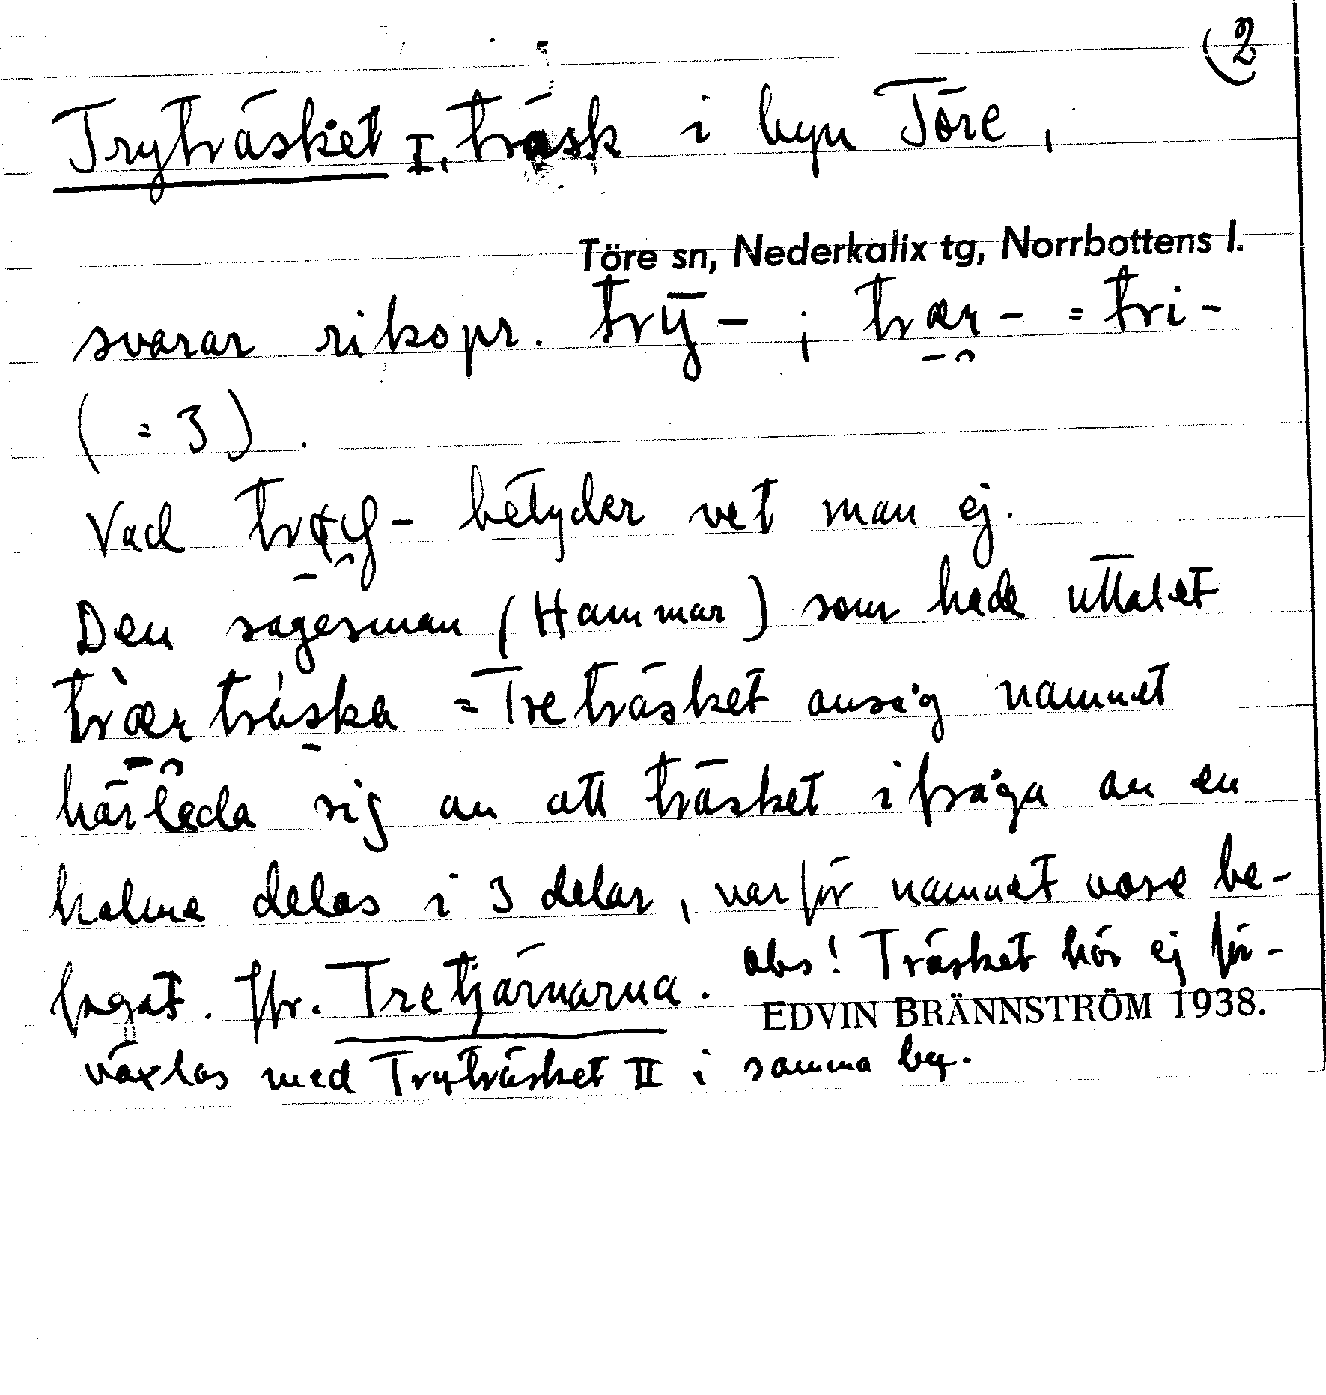 (2
Tryträsket I, träsk i byn Töre,
Töre sn, Nederkalix tg, Norrbottens l.
svarar rikspr. trȳ- ; trær- = tri-
(= 3).
Vad betyder vet man ej.
Den sagesman (Hammar) som hade uttalet
trær träska = Treträsket ansåg namnet
härleda sig an att träsket ifråga an en
holme delas i 3 delar, varför namnet vore be-
fogat. Jfr. Tretjärnarna. obs! Träsket bör ej för-
EDVIN BRÄNNSTRÖM 1938.
växlas med Tryträsket II i samma by.